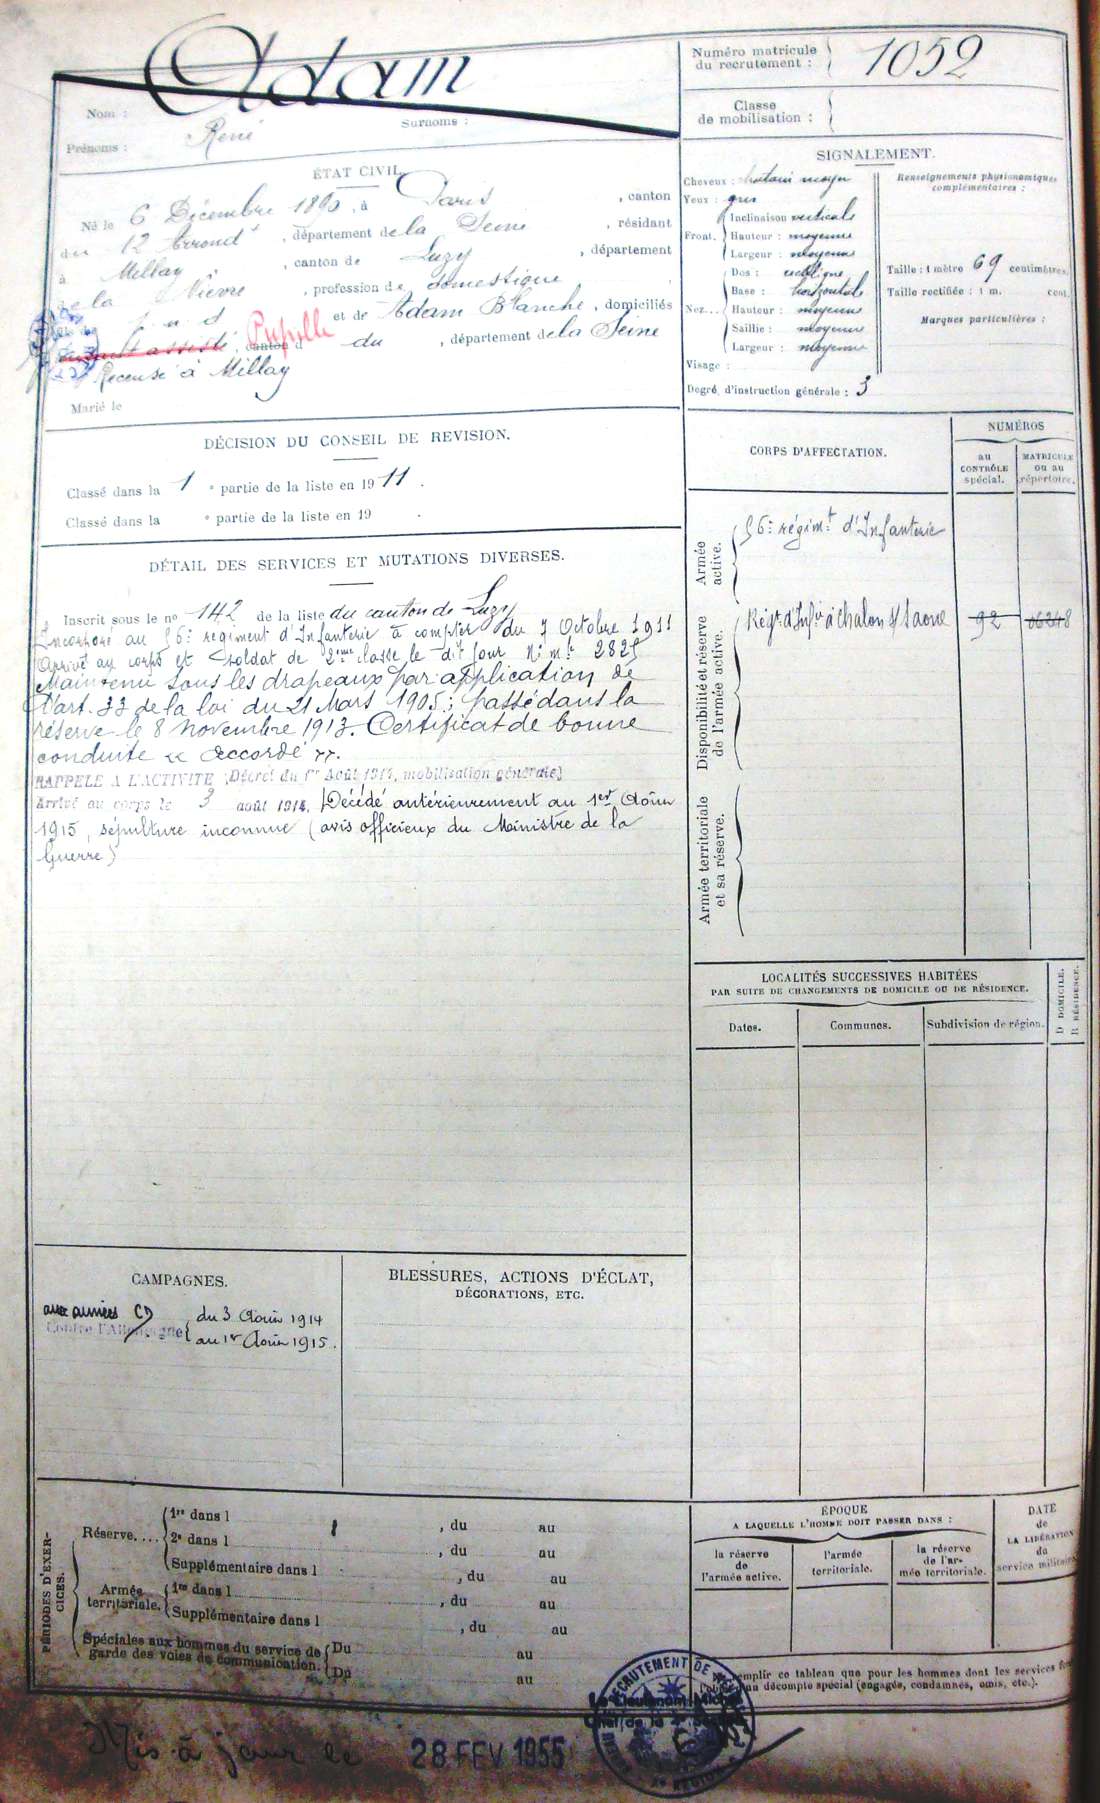 Adam
Nom :
Surnoms :
Prénoms : René
Numéro matricule du recrutement : 1052
Classe de mobilisation :
ÉTAT CIVIL.
Né le 6 Décembre 1890, à Paris, canton
du 12 Arrondt, département de la Seine, résidant
à Millay, canton de Luzy, département
de la Nièvre, profession de domestique
fils de f n d et de Adam Blanche, domiciliés
assisté Pupille canton d du, département de la Seine
Recensé à Millay
Marié le
SIGNALEMENT.
Cheveux : chatain moyen
Yeux : gris
Front. Inclinaison verticale
Hauteur : moyenne
Largeur : moyenne
Nez... Dos : rectiligne
Base : horizontale
Hauteur : moyenne
Saillie : moyenne
Largeur : moyenne
Visage :
Degré d'instruction générale : 3
Renseignements physionomiques complémentaires :
Taille : 1 mètre 69 centimètres.
Taille rectifiée : 1 m. cent.
Marques particulières :
DÉCISION DU CONSEIL DE REVISION.
Classé dans la 1 e partie de la liste en 1911.
Classé dans la e partie de la liste en 19 .
DÉTAIL DES SERVICES ET MUTATIONS DIVERSES.
Inscrit sous le no 142 de la liste du canton de Luzy
Incorporé au 56e régiment d'Infanterie à compter du 7 Octobre 1911
Arrivé au corps et soldat de 2ème classe le dit jour No mle 2825
Maintenu sous les drapeaux par application de
l'art. 33 de la loi du 21 Mars 1905; passé dans la
réserve le 8 Novembre 1913. Certificat de bonne
conduite « Accordé ».
RAPPELÉ A L'ACTIVITÉ (Décret du 1er Août 1914, mobilisation générale)
Arrivé au corps le 3 août 1914. Décédé antérieurement au 1er Août
1915, sépulture inconnue (avis officieux du Ministre de la
Guerre)
CORPS D'AFFECTATION.
NUMÉROS
au CONTRÔLE spécial.
MATRICULE ou au répertoire.
Armée active.
56e régimt d'Infanterie
Disponibilité et réserve de l'armée active.
Régt d'Infie à Chalon s/ Saone 92 06248
Armée territoriale et sa réserve.
LOCALITÉS SUCCESSIVES HABITÉES
PAR SUITE DE CHANGEMENTS DE DOMICILE OU DE RÉSIDENCE.
Dates.
Communes.
Subdivision de région.
D DOMICILE.
R RÉSIDENCE.
CAMPAGNES.
aux armées CD
Contre l'Allemagne
du 3 Août 1914
au 1er Août 1915.
BLESSURES, ACTIONS D'ÉCLAT,
DÉCORATIONS, ETC.
PÉRIODES D'EXERCICES.
Réserve.... 1re dans l , du au
2e dans l , du au
Supplémentaire dans l , du au
Armée territoriale. 1re dans l , du au
Supplémentaire dans l , du au
Spéciales aux hommes du service de garde des voies de communication. Du au
Du au
ÉPOQUE
A LAQUELLE L'HOMME DOIT PASSER DANS :
la réserve de l'armée active.
l'armée territoriale.
la réserve de l'armée territoriale.
DATE de LA LIBÉRATION du service militaire
emplir ce tableau que pour les hommes dont les services
un décompte spécial (engagés, condamnés, omis, etc.).
RECRUTEMENT DE
Le Lieutenant Michel
Chef de la
Mis à jour le 28 FEV 1955